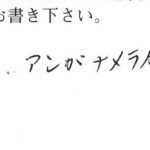 お書き下さい。
アンがナメラ